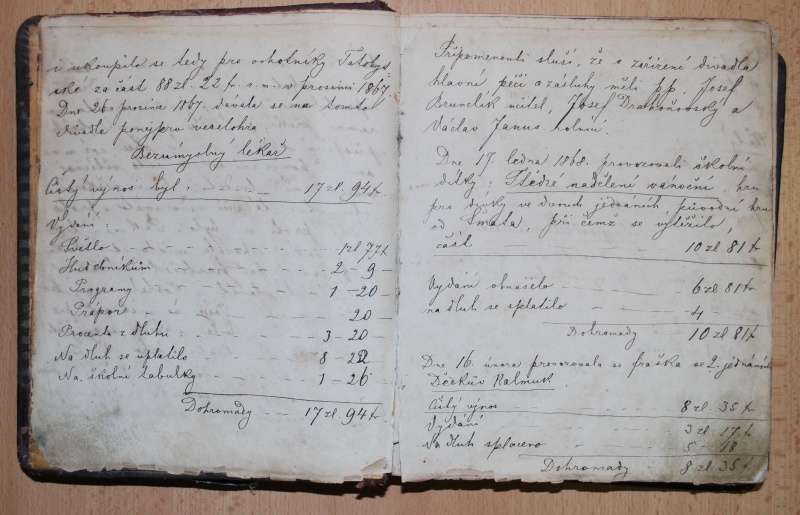 i ukoupilo se tedy pro ochotníky Tatobyt-
ské za část 88 zl. 22 kr. r. m. v prosinci 1867.
Dne 26. prosince 1867. davala se na tomto
divadle ponejprv veselohra:
Bezúmyslný lékař
Čistý výnos byl: 17 zl. 94 kr
Vydání:
Světlo 1 zl 77 kr
Hudebníkům 2 - 9 -
Programy 1 - 20 -
Prápor 20
Procenta z dluhu: 3 - 20
Na dluh se uplatilo 8 - 22
Na školní tabulky 1 - 26
Dohromady 17 zl. 94 kr
Připomenouti sluší, že o zařízení divadla
hlavní péči a zásluhy měli pp. Josef
Brunclík učitel, Josef Drahoňovský a
Václav Janus rolníci.
Dne 17. ledna 1868. provozovali školní
dítky: Štědré nadělení vánoční, hru
pro dívky ve dvouch jednáních, původní hru
od Šmata, při čemž se vytěžilo,
část 10 zl 81 kr
Vydání obnášelo 6 zl 81 kr
na dluh se splatilo 4 -
Dohromady 10 zl 81 kr
Dne 16. února provozovala se fraška ve 2. jednáních
Děckův Kalmuk.
Čistý výnos 8 zl. 35 kr
Vydání 3 zl 17 kr
Na dluh splaceno 5 - 18
Dohromady 8 zl. 35 kr